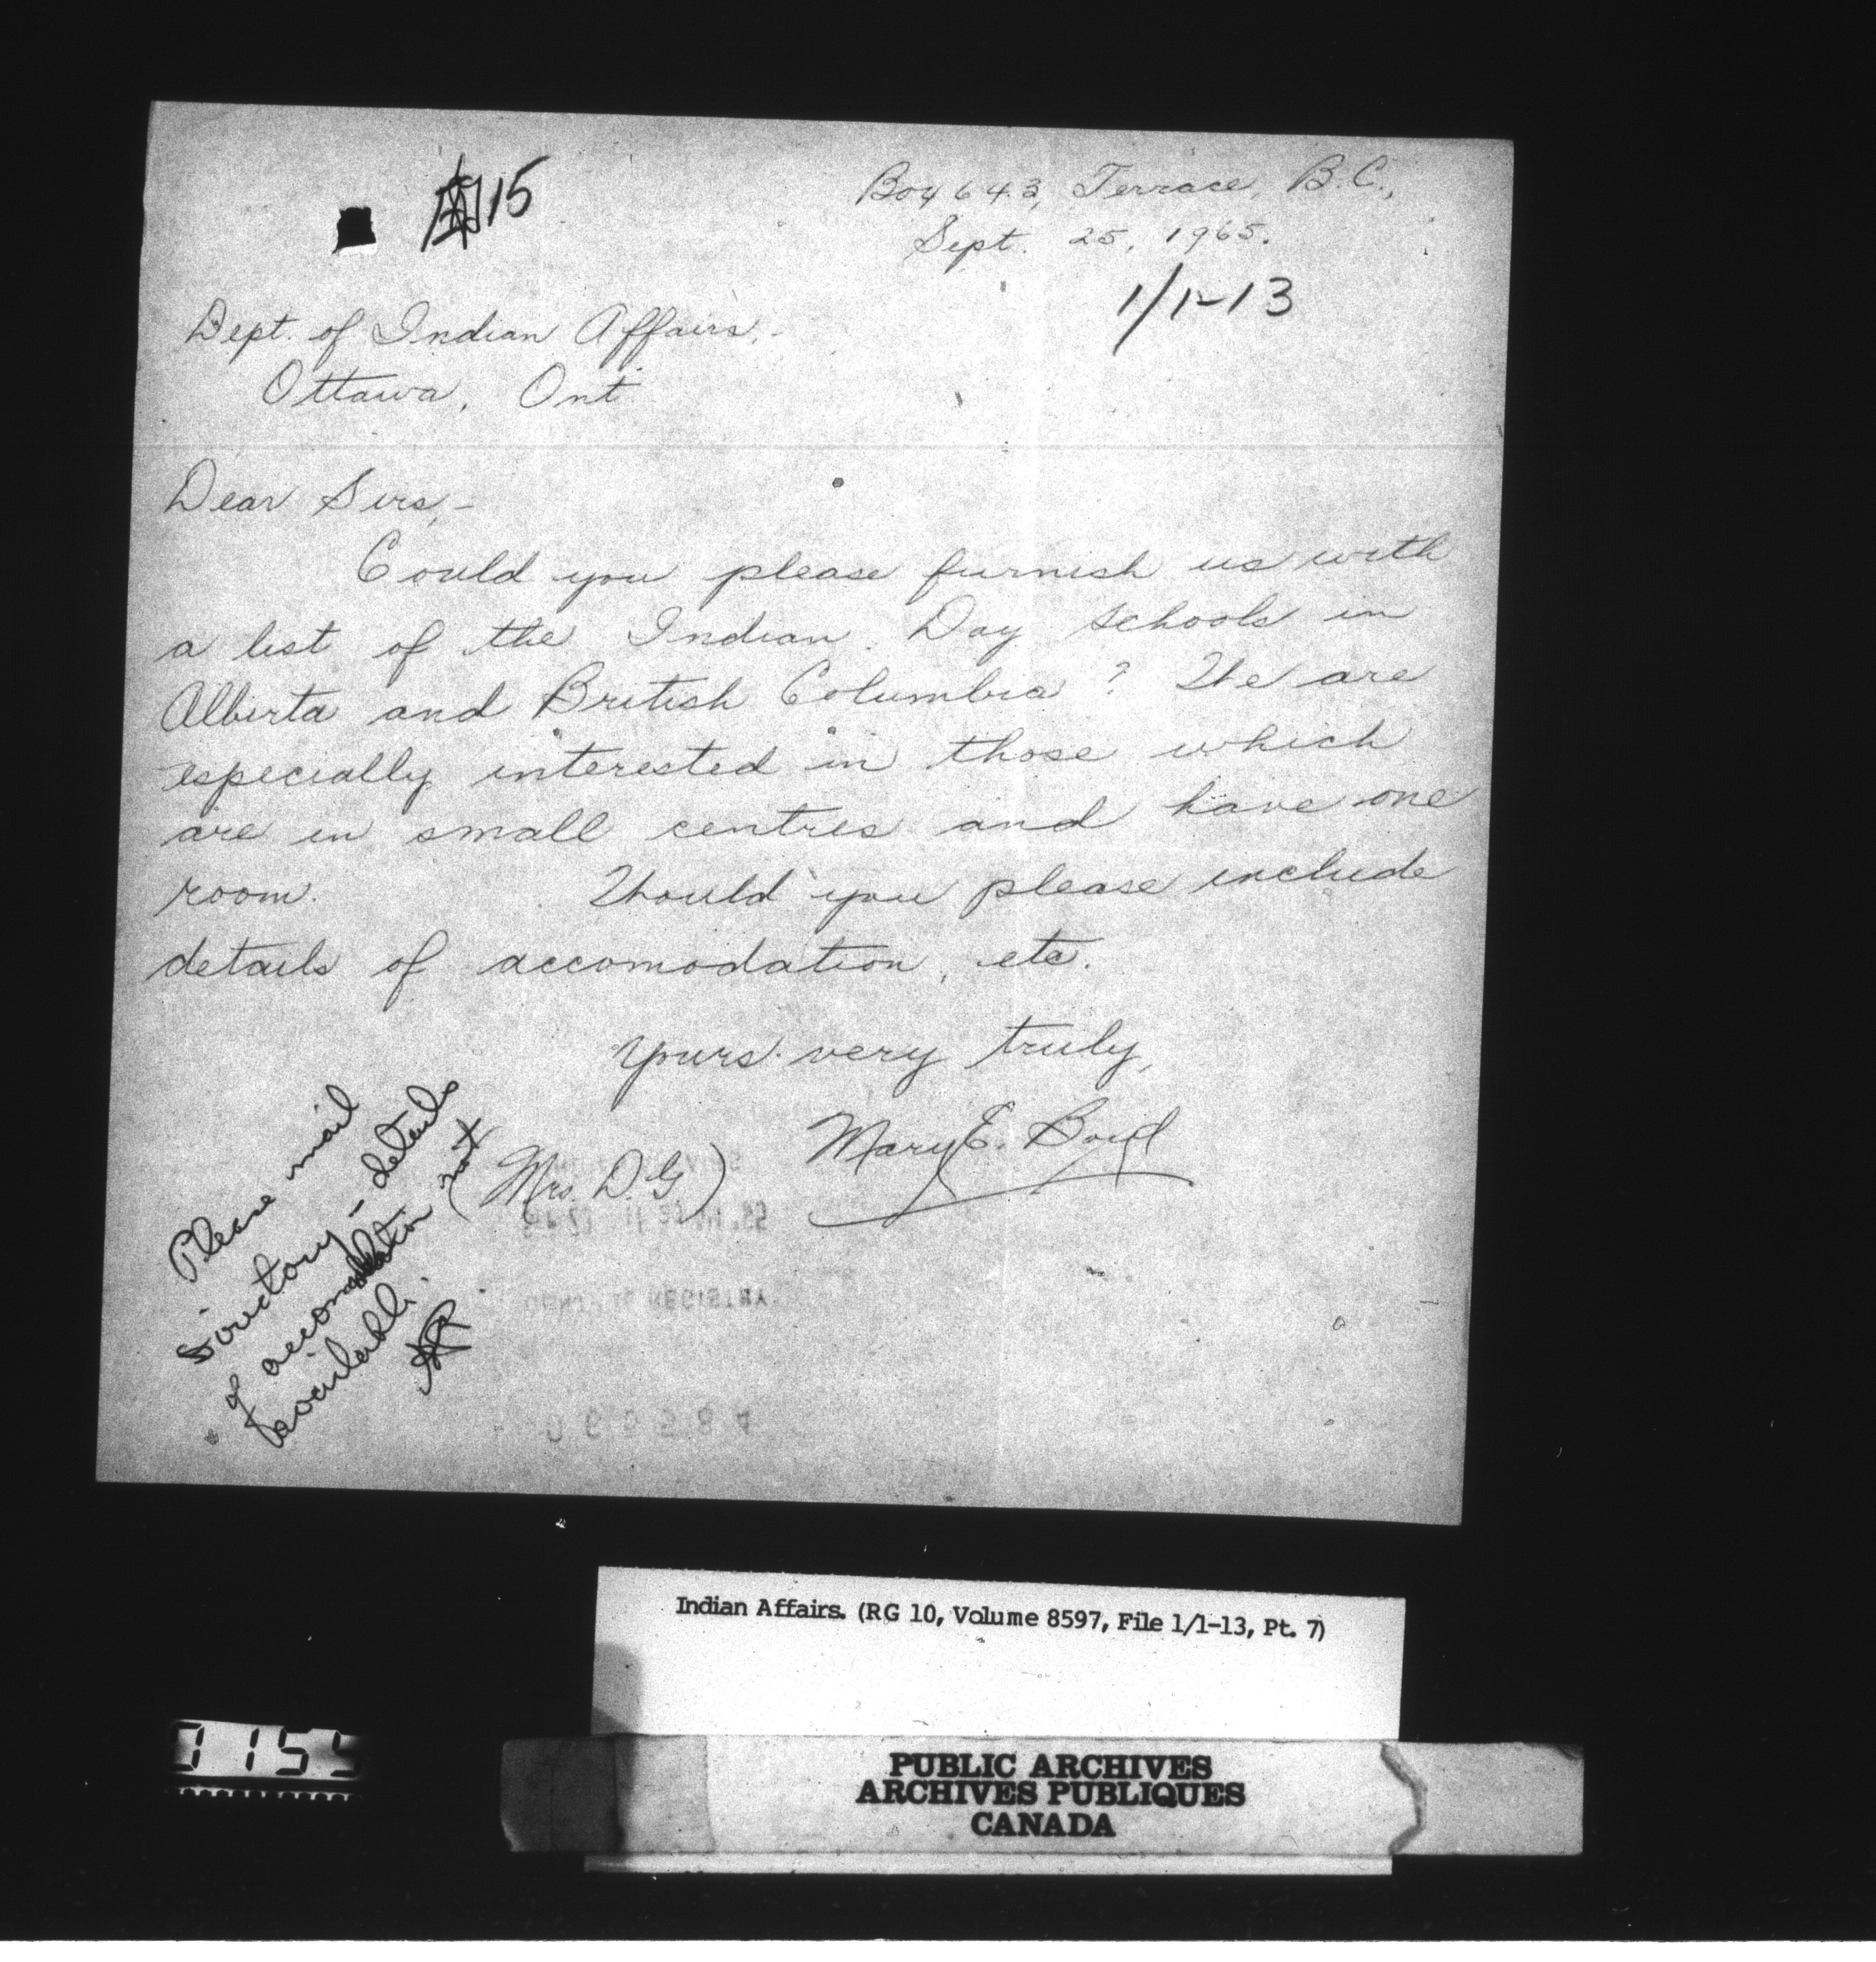 15
Box 643, Terrace, B.C.,
Sept. 25, 1965.
1/1-13
Dept. of Indian Affairs,
Ottawa, Ont.
Dear Sirs,-
Could you please furnish us with
a list of the Indian Day schools in
Alberta and British Columbia? We are
especially interested in those which
are in small centres and have one
room. Would you please include
details of accomodation, etc.
Yours very truly,
Mary E. Boyd
(Mrs. D.G.)
Please mail
Directory - details
of accomodation not
available.
CENTRAL REGISTRY
Indian Affairs. (RG 10, Volume 8597, File 1/1-13, Pt. 7)
1155
PUBLIC ARCHIVES
ARCHIVES PUBLIQUES
CANADA